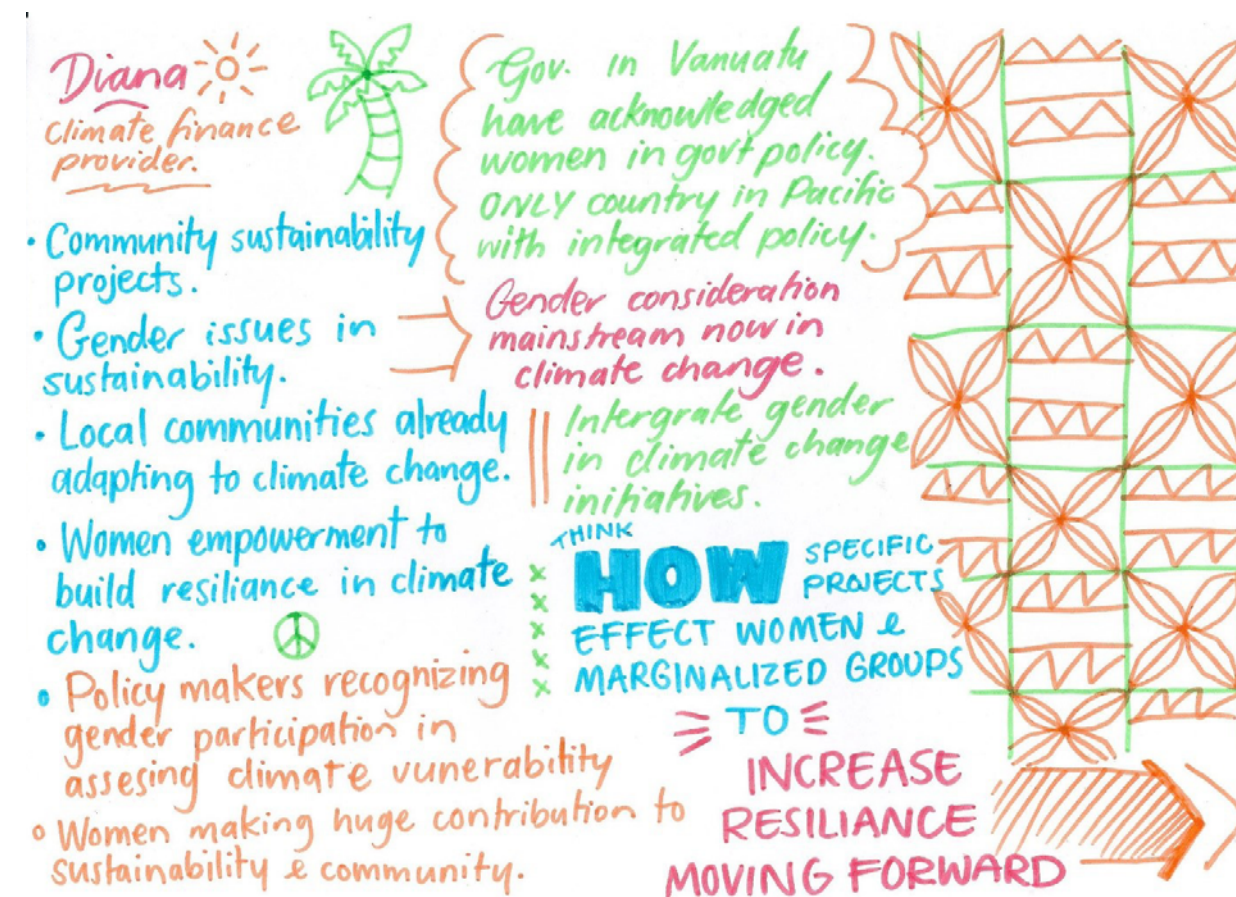 Diana
Climate finance
provider.
• Community sustainability
projects.
• Gender issues in
sustainability.
• Local communities already
adapting to climate change.
• Women empowerment to
build resiliance in climate
change.
• Policy makers recognizing
gender participation in
assesing climate vunerability
• Women making huge contribution to
sustainability & community.
Gov. in Vanuatu
have acknowledged
women in govt policy.
ONLY country in Pacific
with integrated policy.
Gender consideration
mainstream now in
climate change.
Intergrate gender
in climate change
initiatives.
THINK
HOW SPECIFIC
PROJECTS
EFFECT WOMEN &
MARGINALIZED GROUPS
TO
INCREASE
RESILIANCE
MOVING FORWARD